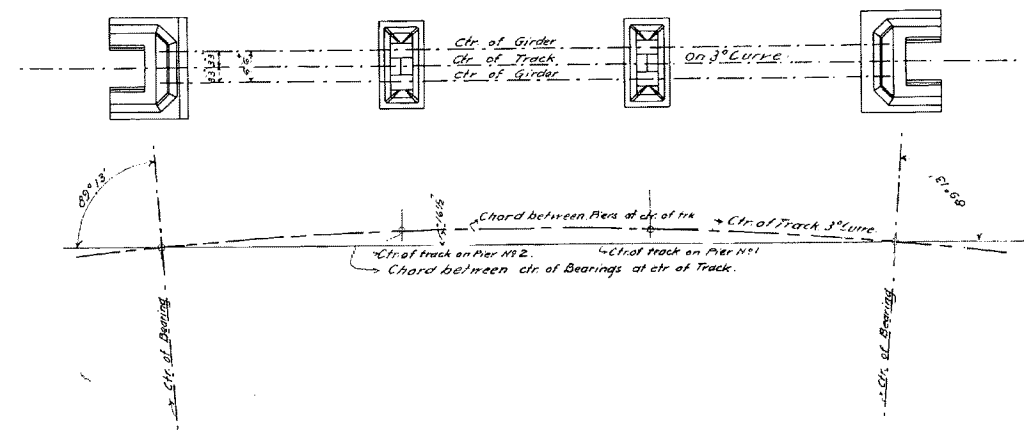 Ctr. of Girder
Ctr of Track
Ctr. of Girder
on 3° Curve.
3'3"
3'3"
6'6"
89°13'
89°13'
Chord between Piers at ctr. of trk
Ctr. of Track 3° Curve.
Ctr. of track on Pier Nº 2.
Ctr. of track on Pier Nº 1
Chord between ctr. of Bearings at ctr of Track.
Ctr. of Bearing
Ctr. of Bearing